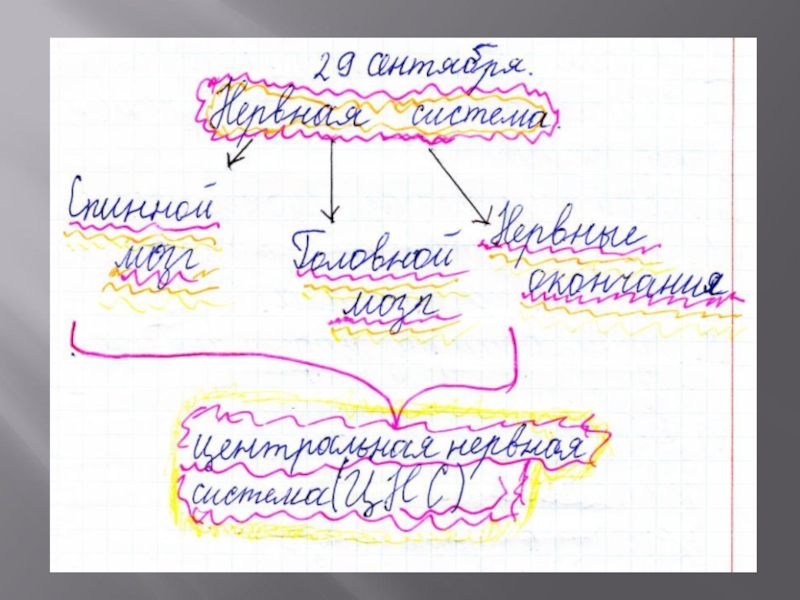 29 сентября.
Нервная система.
Спинной
мозг
Головной
мозг
Нервные
окончания
центральная нервная
система (ЦНС)